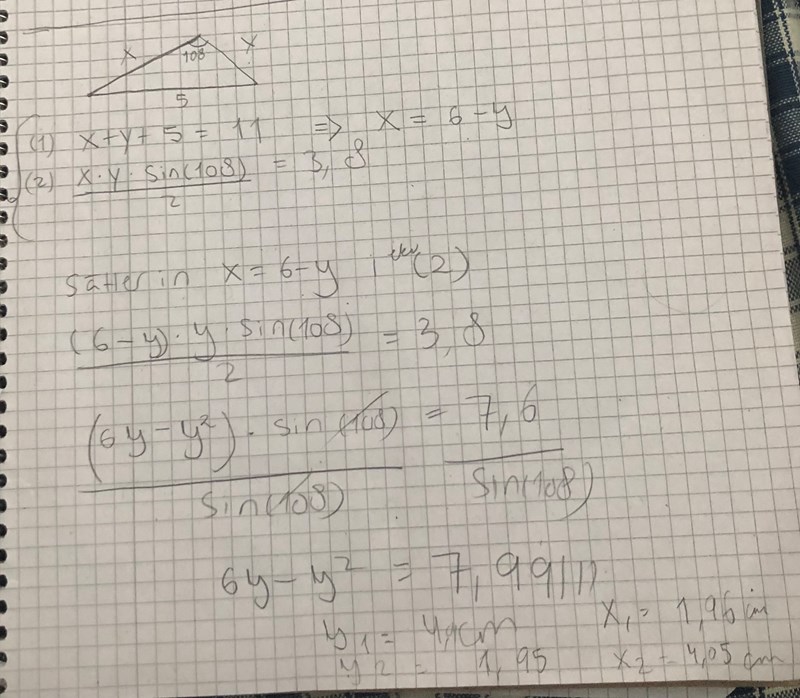 x 108 y
5
(1) x+y+5 = 11 => x = 6-y
(2) x·y·sin(108)/2 = 3,8
Sätter in x = 6-y i (2)
(6-y)·y·sin(108)/2 = 3,8
(6y-y²)·sin(108)/sin(108) = 7,6/sin(108)
6y-y² = 7,991
y₁ = cm x₁ = 1,96 cm
y₂ = 1,95 x₂ = 4,05 cm